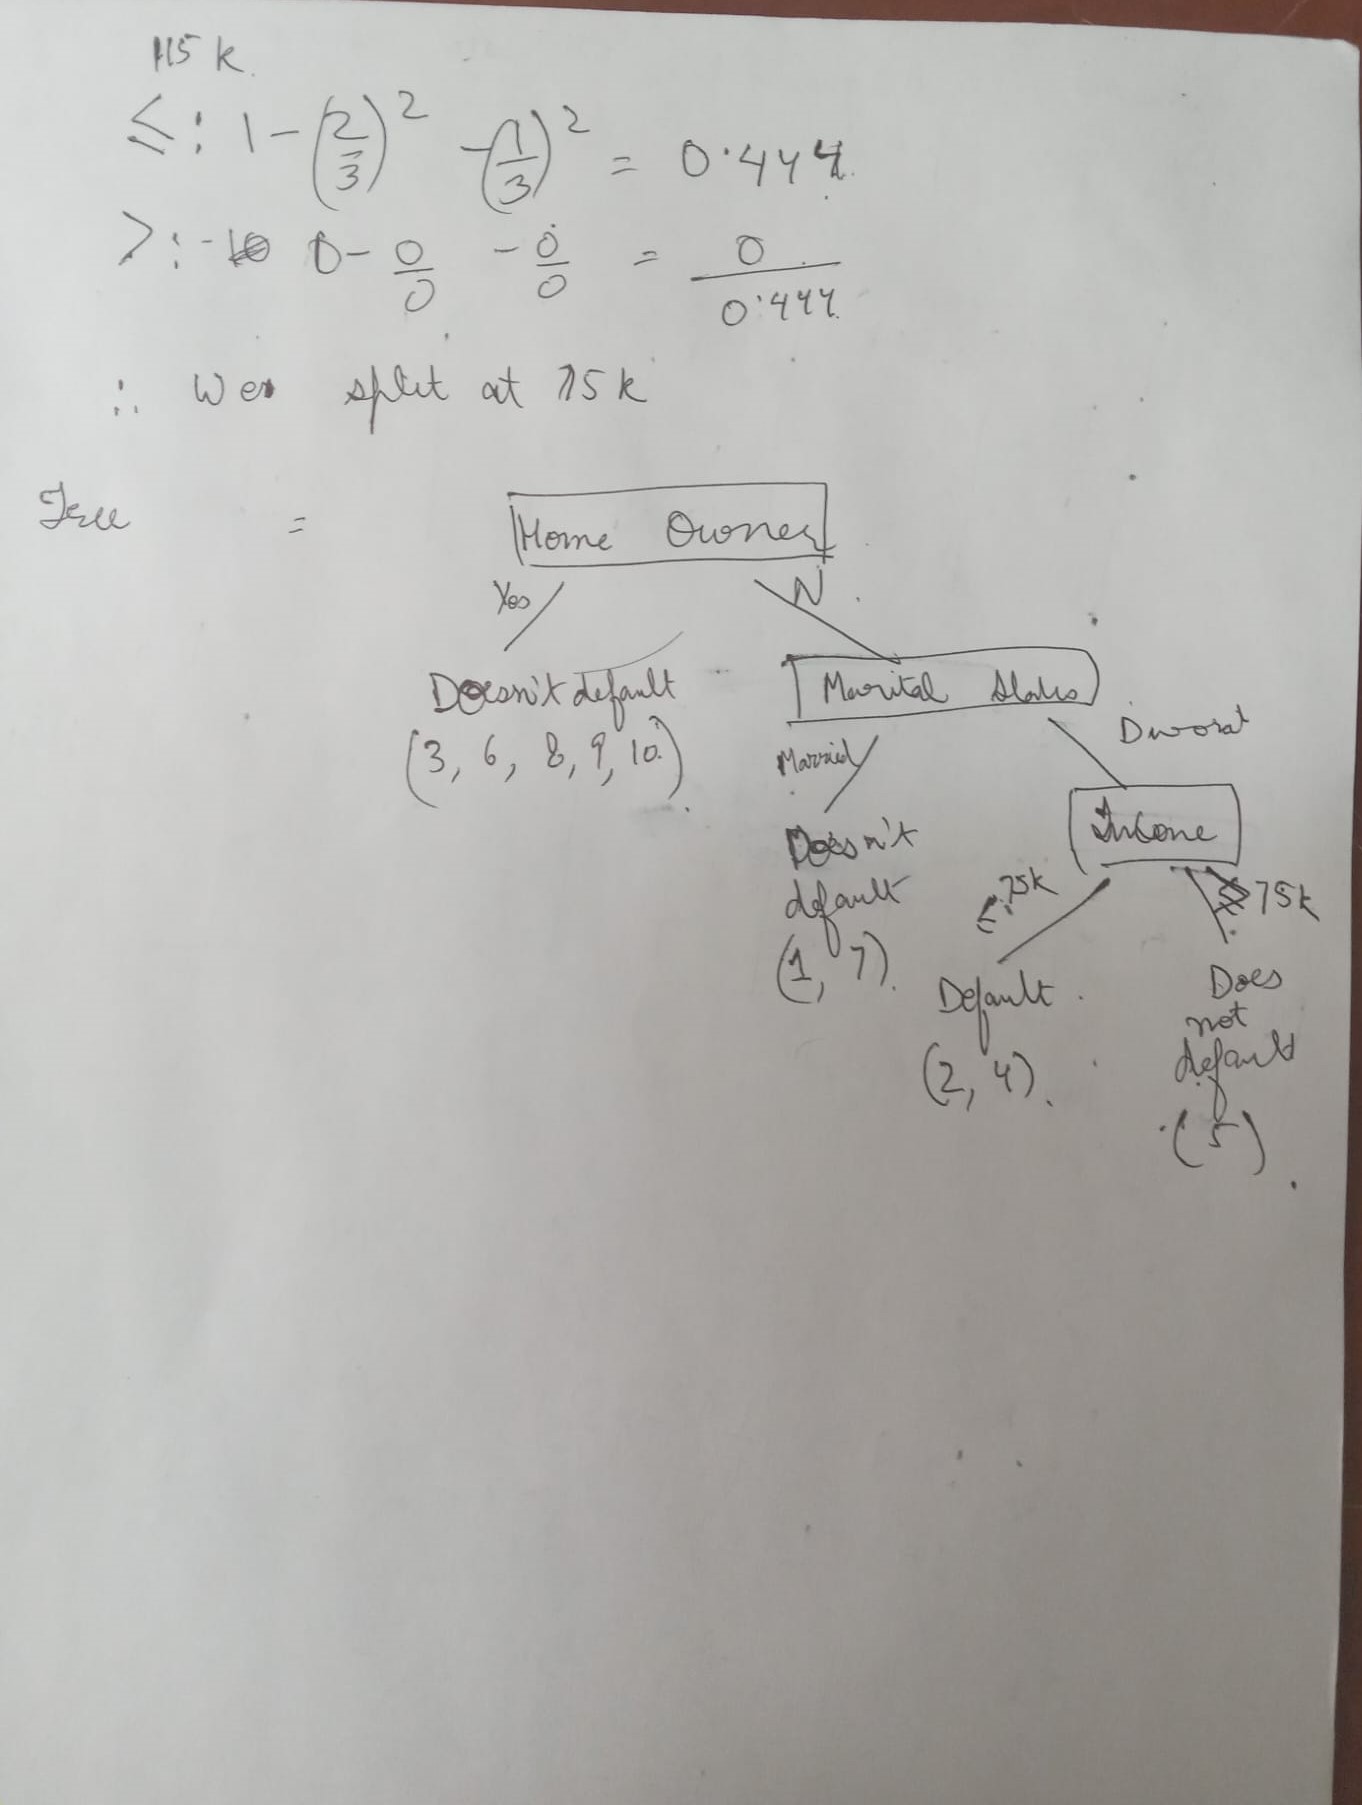 115 k.
≤: 1 - (2/3)² - (1/3)² = 0.444.
>: 0 - 0/0 - 0/0 = 0
0.444.
∴ We split at 75k
Tree = Home Owner
Yes N
Doesn't default Marital Status
(3, 6, 8, 9, 10.) Married
Income
Doesn't default
(1, 7).
≤ 75k 75k
Default.
(2, 4).
Does not default
(5)